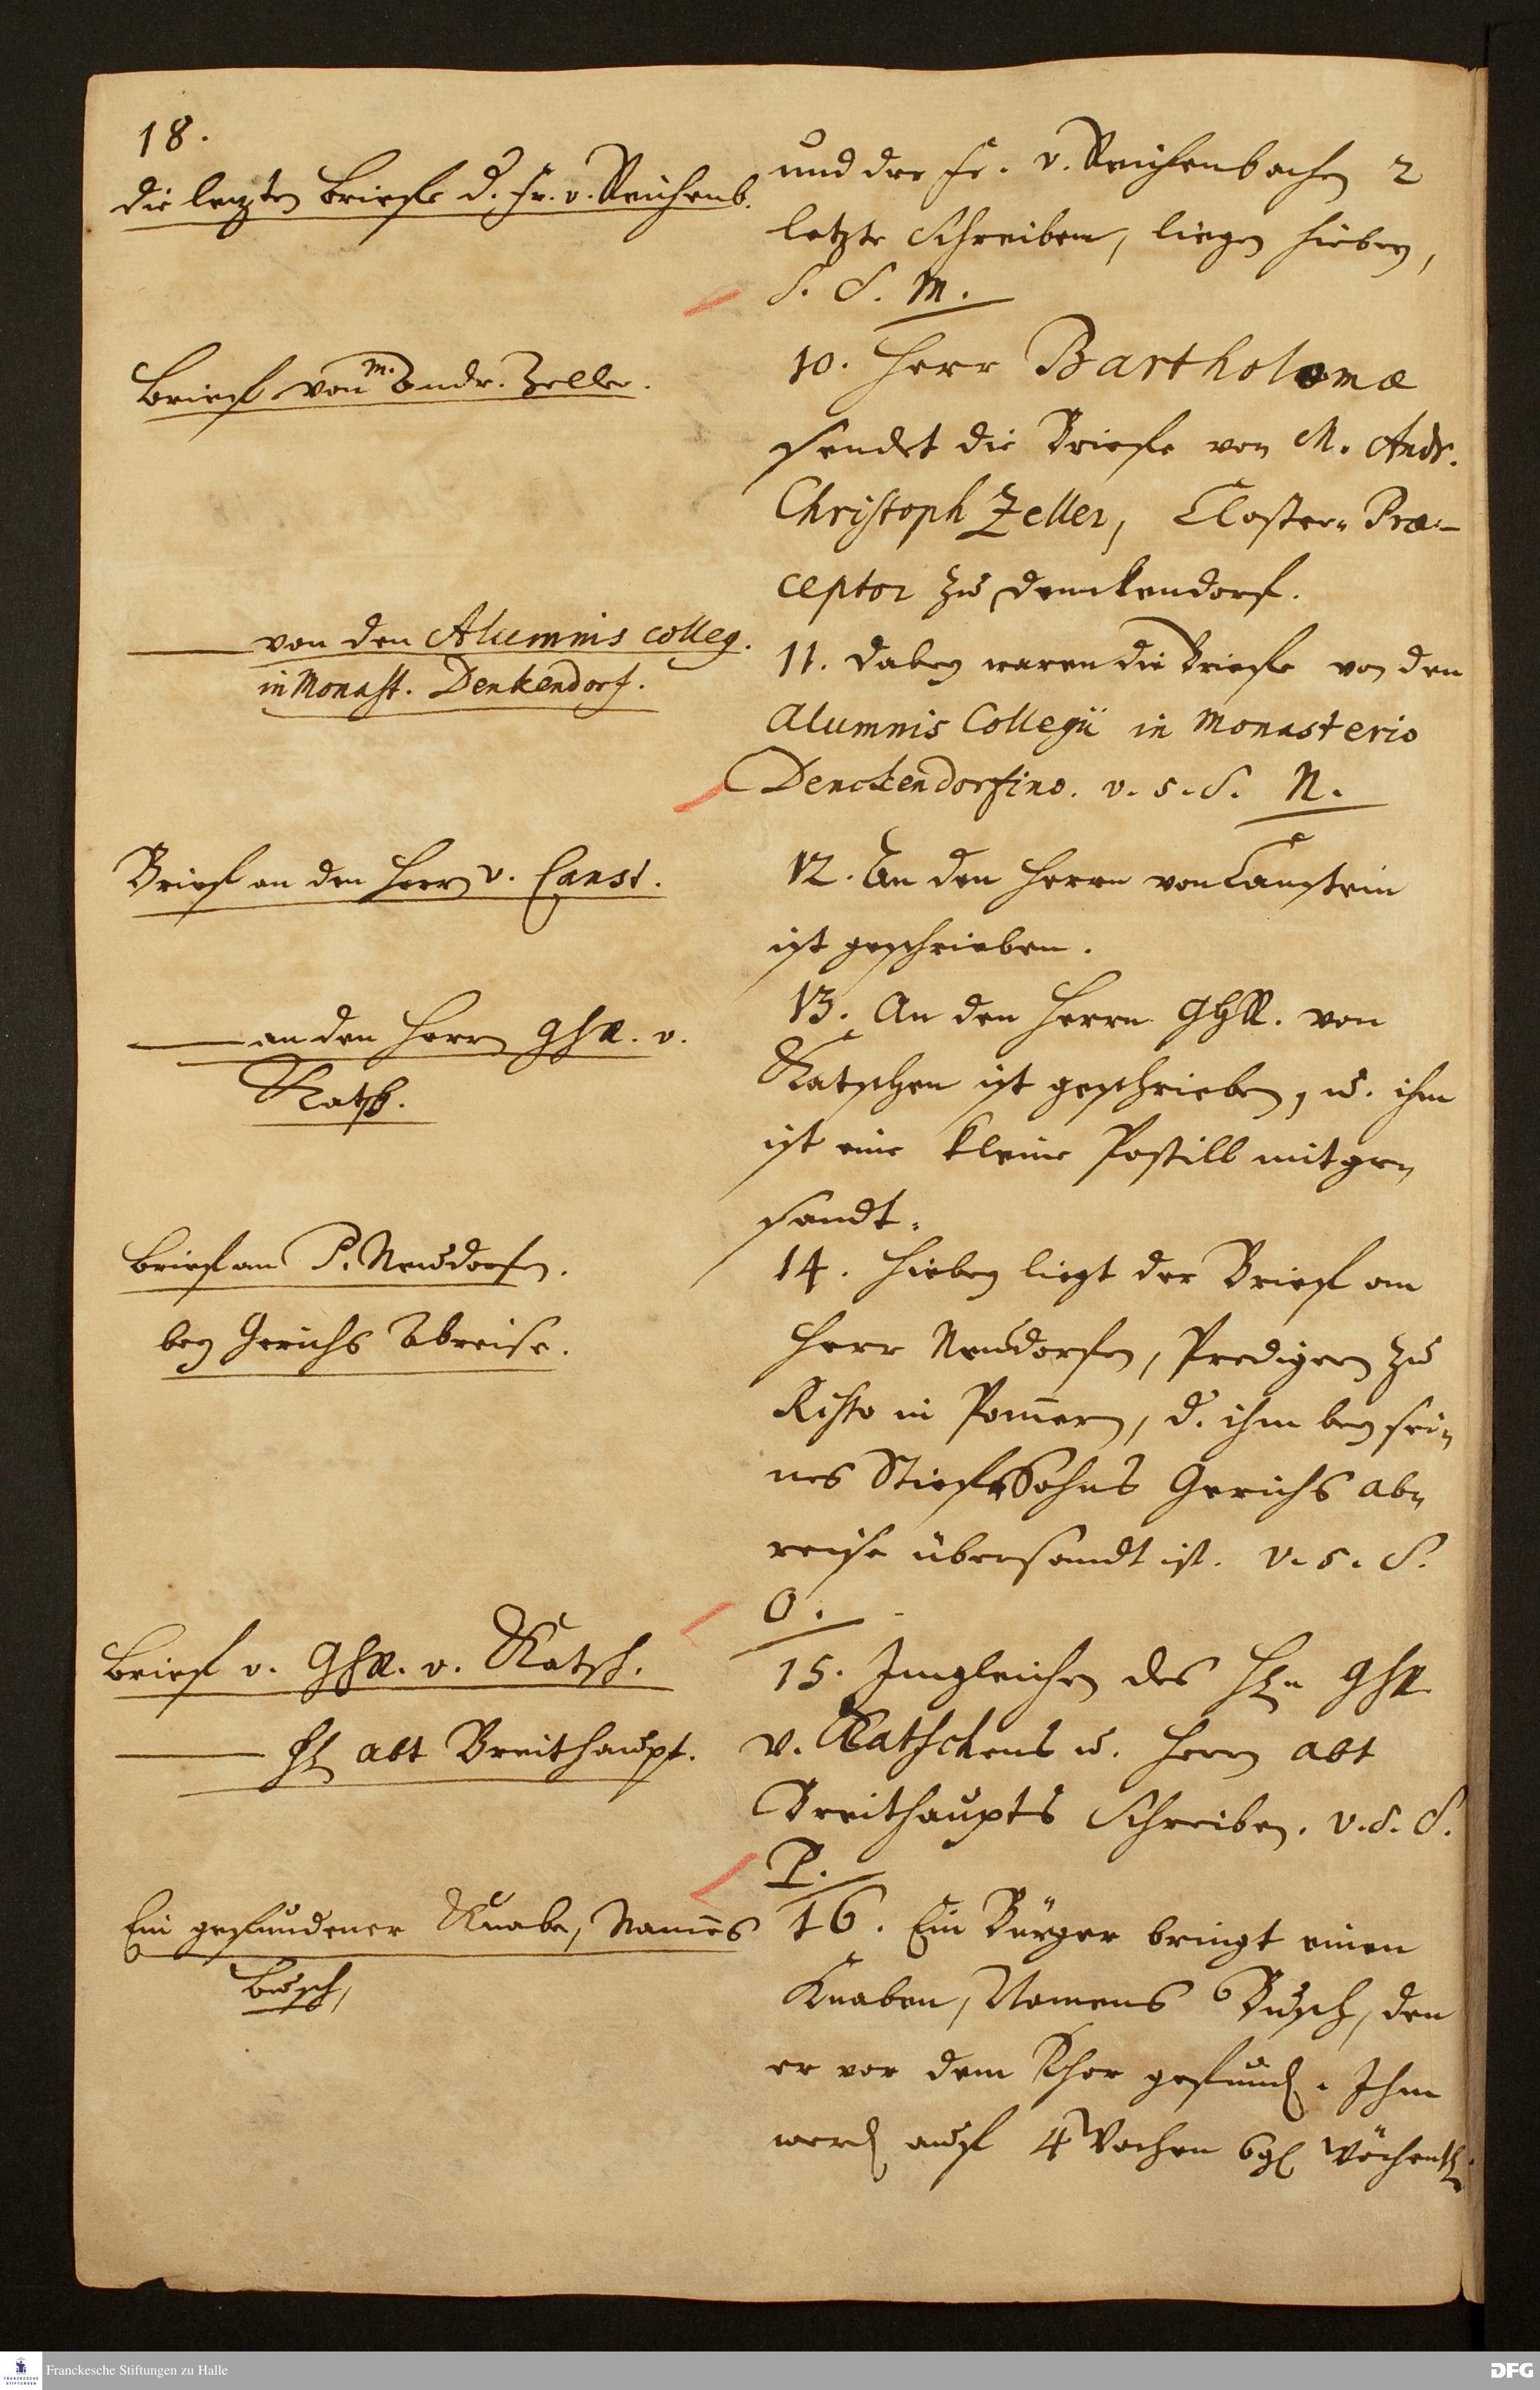 18.
die letzten Briefe d. Fr. v. Reichenb.
und der Fr. v. Reichenbachen 2
letzte Schreiben, liegen hiebey,
S. S. M.
Brieff von M. Andr. Zeller.
10. Herr Bartholomæ
sendet die Briefe von M. Andr.
Christoph Zeller, Closter- Præ-
ceptor zu Denckendorf.
von den Alumnis colleg.
in Monast. Denkendorf.
11. Dabey waren die Briefe von den
Alumnis Collegii in Monasterio
Denckendorfino. v. s. S. N.
Brief an den Herrn v. Canst.
12. An den Herrn von Canstein
ist geschrieben.
an den Herrn GHR. v.
Katsch.
13. An den Herrn GHR. von
Katschen ist geschrieben, u. ihm
ist eine kleine Postill mitge-
sandt.
Brief an P. Neudorfen.
bey Gerichs Abreise.
14. Hiebey liegt der Brief an
Herr Neudorfen, Predigern zu
in Pom̄ern, d. ihm bey sei-
nes Stiefsohns Gerichs ab-
reise übersandt ist. v. s. S.
O.
Brief v. GHR. v. Katsch.
H. Abt Breithaupt.
15. Imgleichen des Hn GHR
v. Katschens u. Herrn Abt
Breithaupts Schreiben. v. s. S.
P.
Ein gefundener Knabe, Nam̄es
Busch,
16. Ein Bürger bringt einen
Knaben, Namens Busch, den
er vor dem Thor gefund. Ihm
werd auf 4 Wochen 6 gl wöchentl.
Franckesche Stiftungen zu Halle
FRANCKESCHE
STIFTUNGEN
DFG